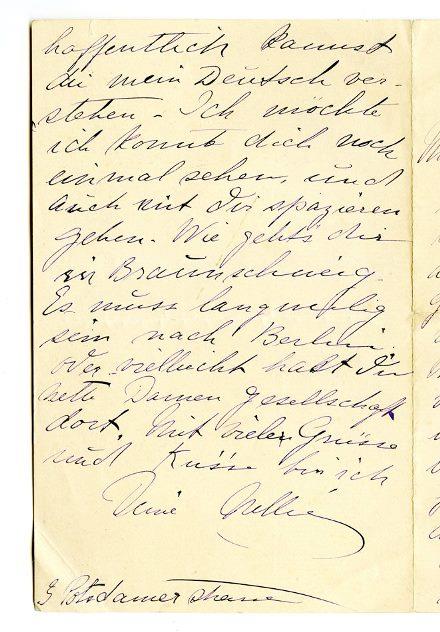 hoffentlich kannst
du mein Deutsch ver-
stehen - Ich möchte
ich konnte dich noch
einmal sehen, und
auch mit Dir spazieren
gehen. Wie gehts dir
in Braunschweig.
Es muss langweilig
sein nach Berlin.
oder vielleicht hast Du
nette Damen gesellschaft
dort. Mit vielen Grüsse
und Küsse bin ich
Deine Nellie
Potsdamer strasse